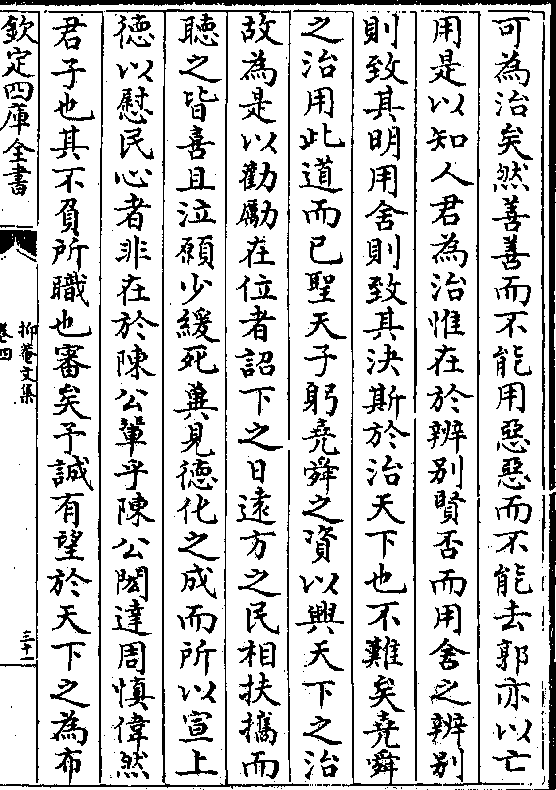 可為治矣然善善而不能用惡惡而不能去郭亦以亡
用是以知人君為治惟在於辨别賢否而用舍之辨别
則致其明用舍則致其決斯於治天下也不難矣堯舜
之治用此道而已聖天子躬堯舜之資以興天下之治
故為是以勸勵在位者詔下之日逺方之民相扶擕而
聽之皆喜且泣願少緩死冀見德化之成而所以宣上
德以慰民心者非在於陳公輩乎陳公閎達周慎偉然
君子也其不負所職也審矣予誠有望於天下之為布
欽定四庫全書
抑菴文集
卷四
三十一